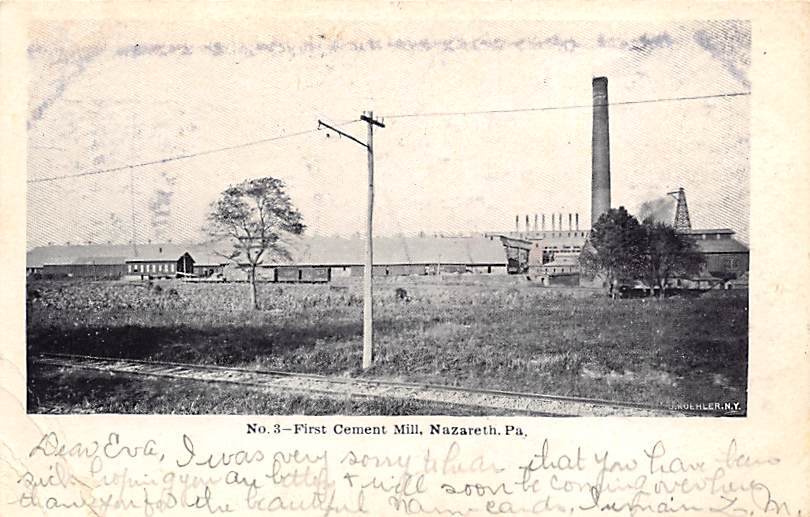 J. KOEHLER, N.Y.
No. 3—First Cement Mill, Nazareth, Pa.
Dear Eva, I was very sorry to hear that you have been
sick hoping you are better & will soon be coming over here
thank you for the beautiful name cards, I remain L. M.